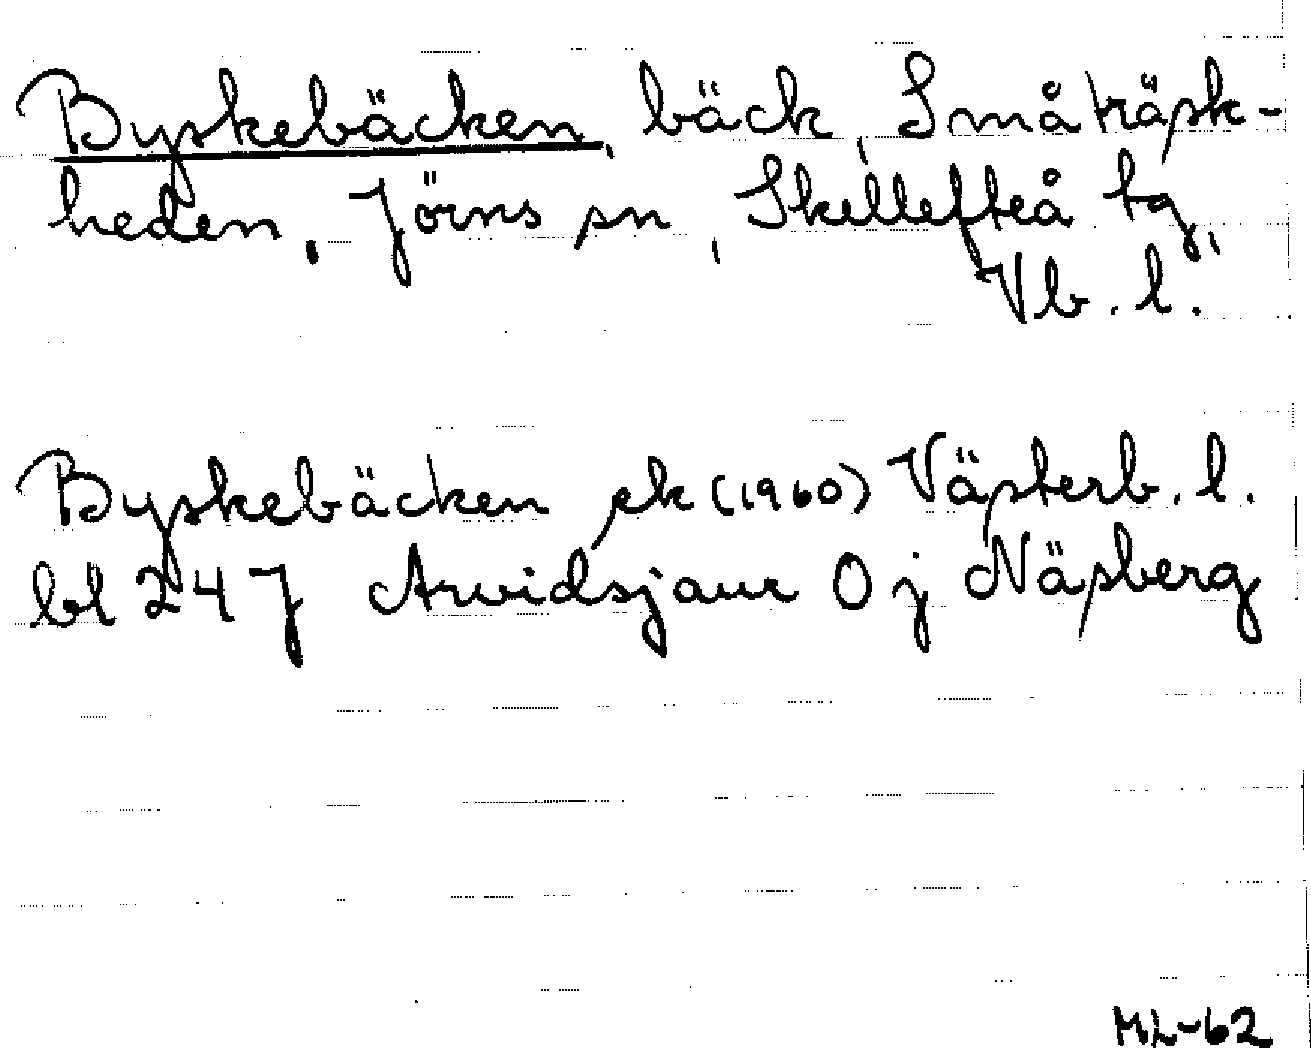 Byskebäcken, bäck, Småträsk-
heden, Jörns sn, Skellefteå tg,
Vb. l.
Byskebäcken ek (1960) Västerb. l.
bl 24 J Arvidsjaur O j Näsberg
ML-62